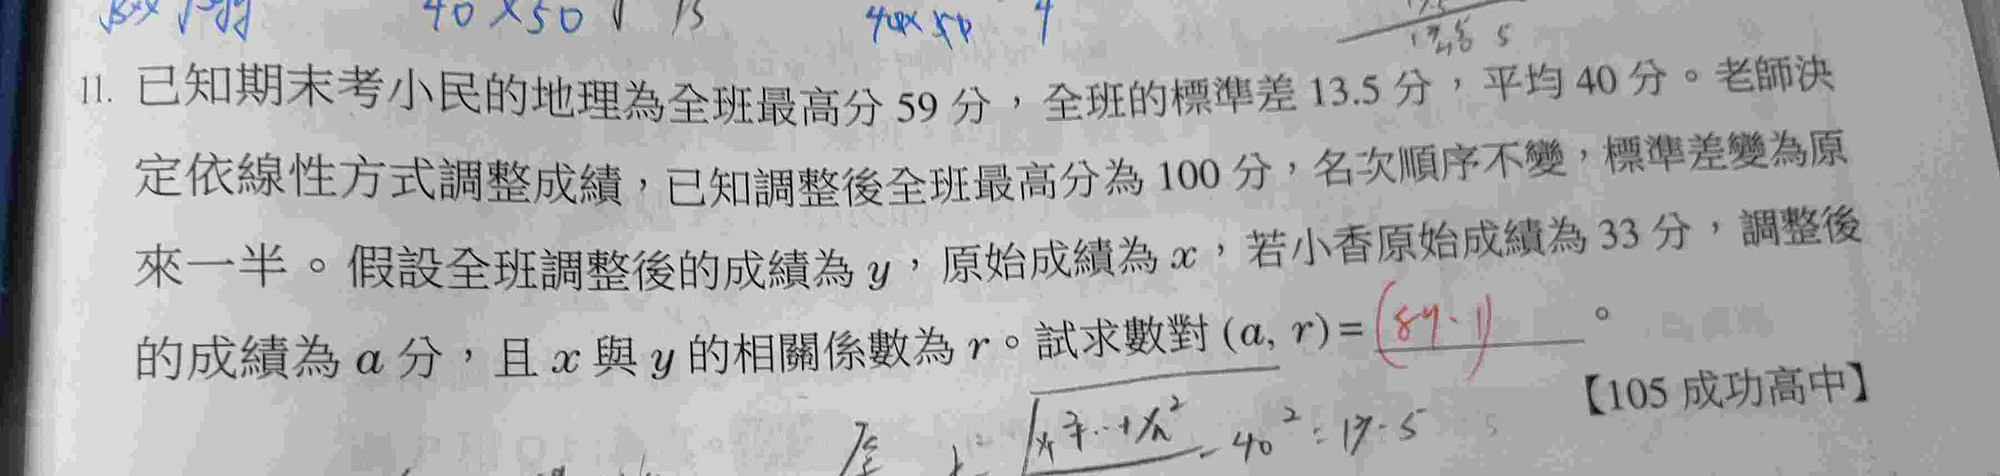 40×50 13 40×50 4
5
11. 已知期末考小民的地理為全班最高分 59 分，全班的標準差 13.5 分，平均 40 分。老師決
定依線性方式調整成績，已知調整後全班最高分為 100 分，名次順序不變，標準差變為原
來一半。假設全班調整後的成績為 y，原始成績為 x，若小香原始成績為 33 分，調整後
的成績為 a 分，且 x 與 y 的相關係數為 r。試求數對 (a, r)= (87.1) 。
【105 成功高中】
- 40² = 13.5